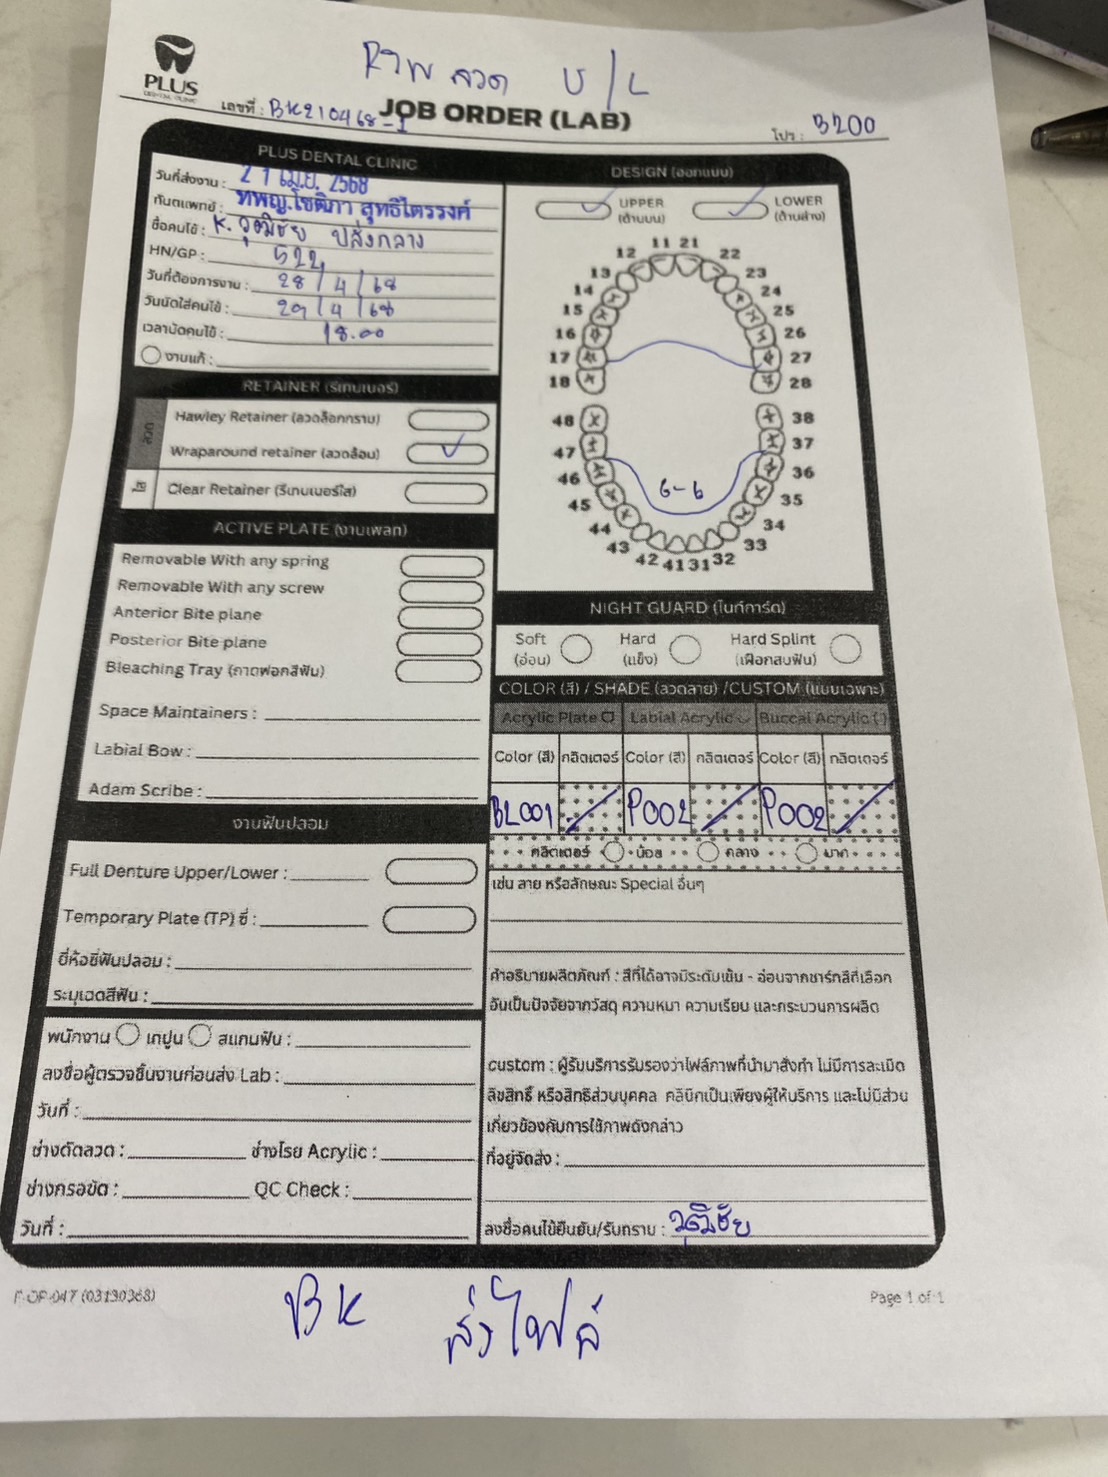 RTW ลวด U/L
PLUS
DENTAL CLINIC
เลขที่ : BK210468-1
JOB ORDER (LAB)
โปร : 3200
PLUS DENTAL CLINIC
วันที่ส่งงาน : 21 เม.ย. 2568
ทันตแพทย์ : ทพญ.โชติภา สุทธิไตรรงค์
ชื่อคนไข้ : K. วุฒิชัย ปลั่งกลาง
HN/GP : 522
วันที่ต้องการงาน : 28/4/68
วันนัดใส่คนไข้ : 29/4/68
เวลานัดคนไข้ : 18.00
งานแก้ :
RETAINER (รีเทนเนอร์)
ลวด
Hawley Retainer (ลวดล็อกกราม)
Wraparound retainer (ลวดล้อม)
ใส
Clear Retainer (รีเทนเนอร์ใส)
ACTIVE PLATE (งานเพลท)
Removable With any spring
Removable With any screw
Anterior Bite plane
Posterior Bite plane
Bleaching Tray (ถาดฟอกสีฟัน)
Space Maintainers :
Labial Bow :
Adam Scribe :
งานฟันปลอม
Full Denture Upper/Lower :
Temporary Plate (TP) ซี่ :
ยี่ห้อซี่ฟันปลอม :
ระบุเฉดสีฟัน :
พนักงาน เทปูน สแกนฟัน :
ลงชื่อผู้ตรวจชิ้นงานก่อนส่ง Lab :
วันที่ :
ช่างดัดลวด : ช่างโรย Acrylic :
ช่างกรอขัด : QC Check :
วันที่ :
DESIGN (ออกแบบ)
UPPER (ด้านบน)
LOWER (ด้านล่าง)
11 21
12 22
13 23
14 24
15 25
16 26
17 27
18 28
48 38
47 37
46 6-6 36
45 35
44 34
43 33
42 41 31 32
NIGHT GUARD (ไนท์การ์ด)
Soft (อ่อน)
Hard (แข็ง)
Hard Splint (เฝือกสบฟัน)
COLOR (สี) / SHADE (ลวดลาย) /CUSTOM (แบบเฉพาะ)
Acrylic Plate Labial Acrylic Buccal Acrylic
Color (สี) กลิตเตอร์ Color (สี) กลิตเตอร์ Color (สี) กลิตเตอร์
BL001 P002 P002
กลิตเตอร์ น้อย กลาง มาก
เช่น ลาย หรือลักษณะ Special อื่นๆ
คำอธิบายผลิตภัณฑ์ : สีที่ได้อาจมีระดับเข้ม - อ่อนจากชาร์ทสีที่เลือก
อันเป็นปัจจัยจากวัสดุ ความหนา ความเรียบ และกระบวนการผลิต
custom : ผู้รับบริการรับรองว่าไฟล์ภาพที่นำมาสั่งทำ ไม่มีการละเมิด
ลิขสิทธิ์ หรือสิทธิส่วนบุคคล คลินิกเป็นเพียงผู้ให้บริการ และไม่มีส่วน
เกี่ยวข้องกับการใช้ภาพดังกล่าว
ที่อยู่จัดส่ง :
ลงชื่อคนไข้ยืนยัน/รับทราบ : วุฒิชัย
F-OP-047 (03190368)
Page 1 of 1
BK ส่งไฟล์